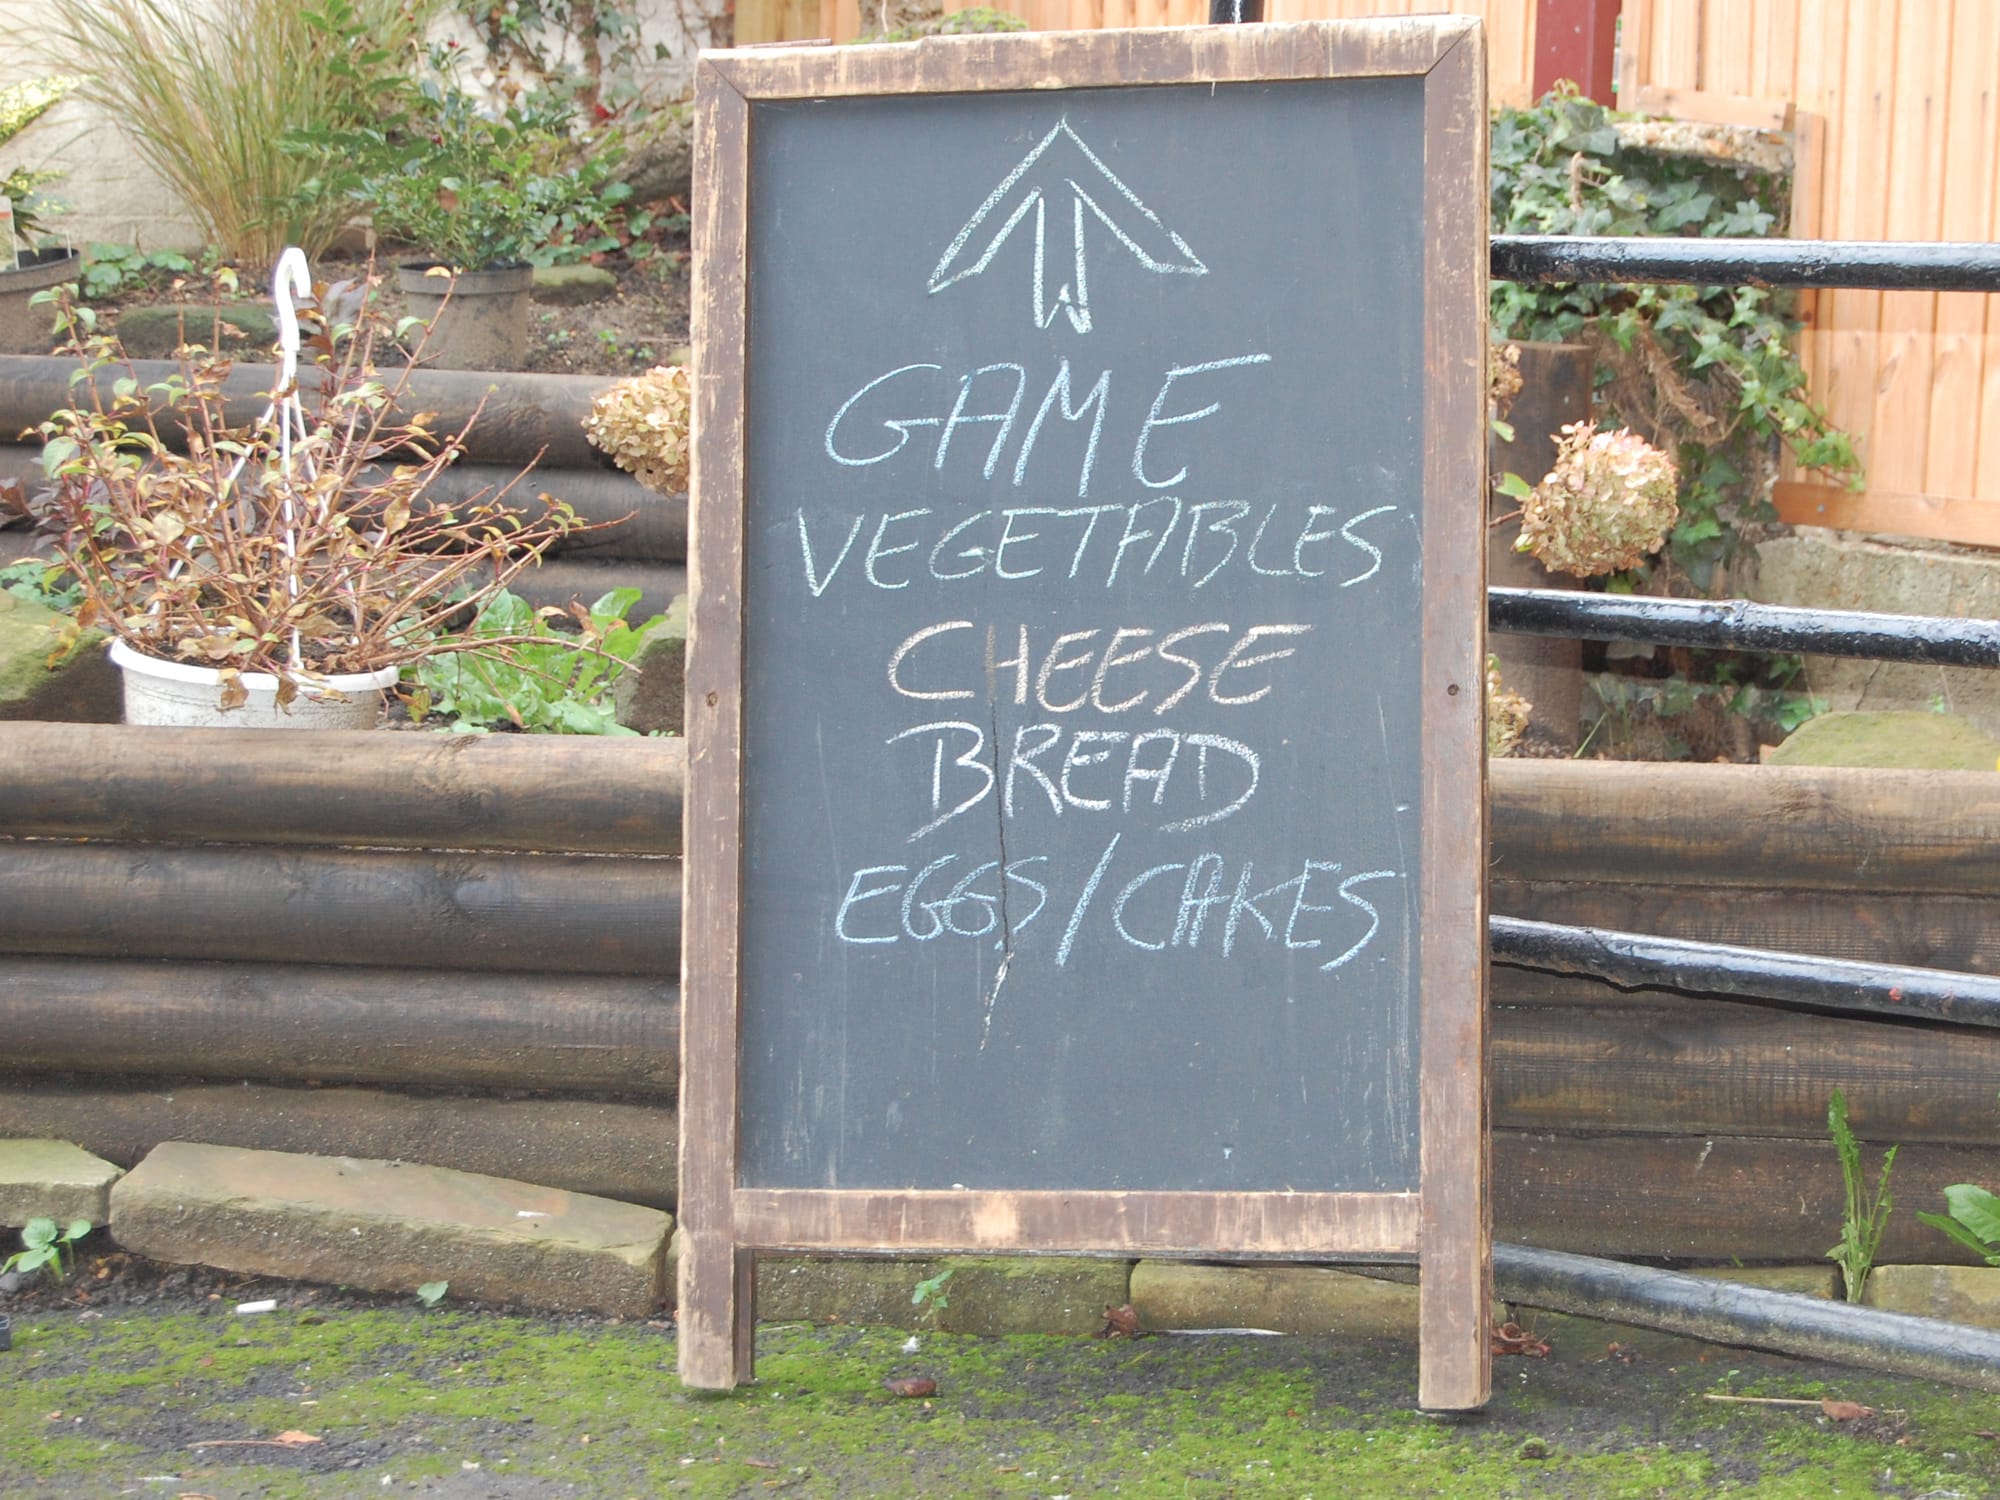 GAME
VEGETABLES
CHEESE
BREAD
EGGS/CAKES